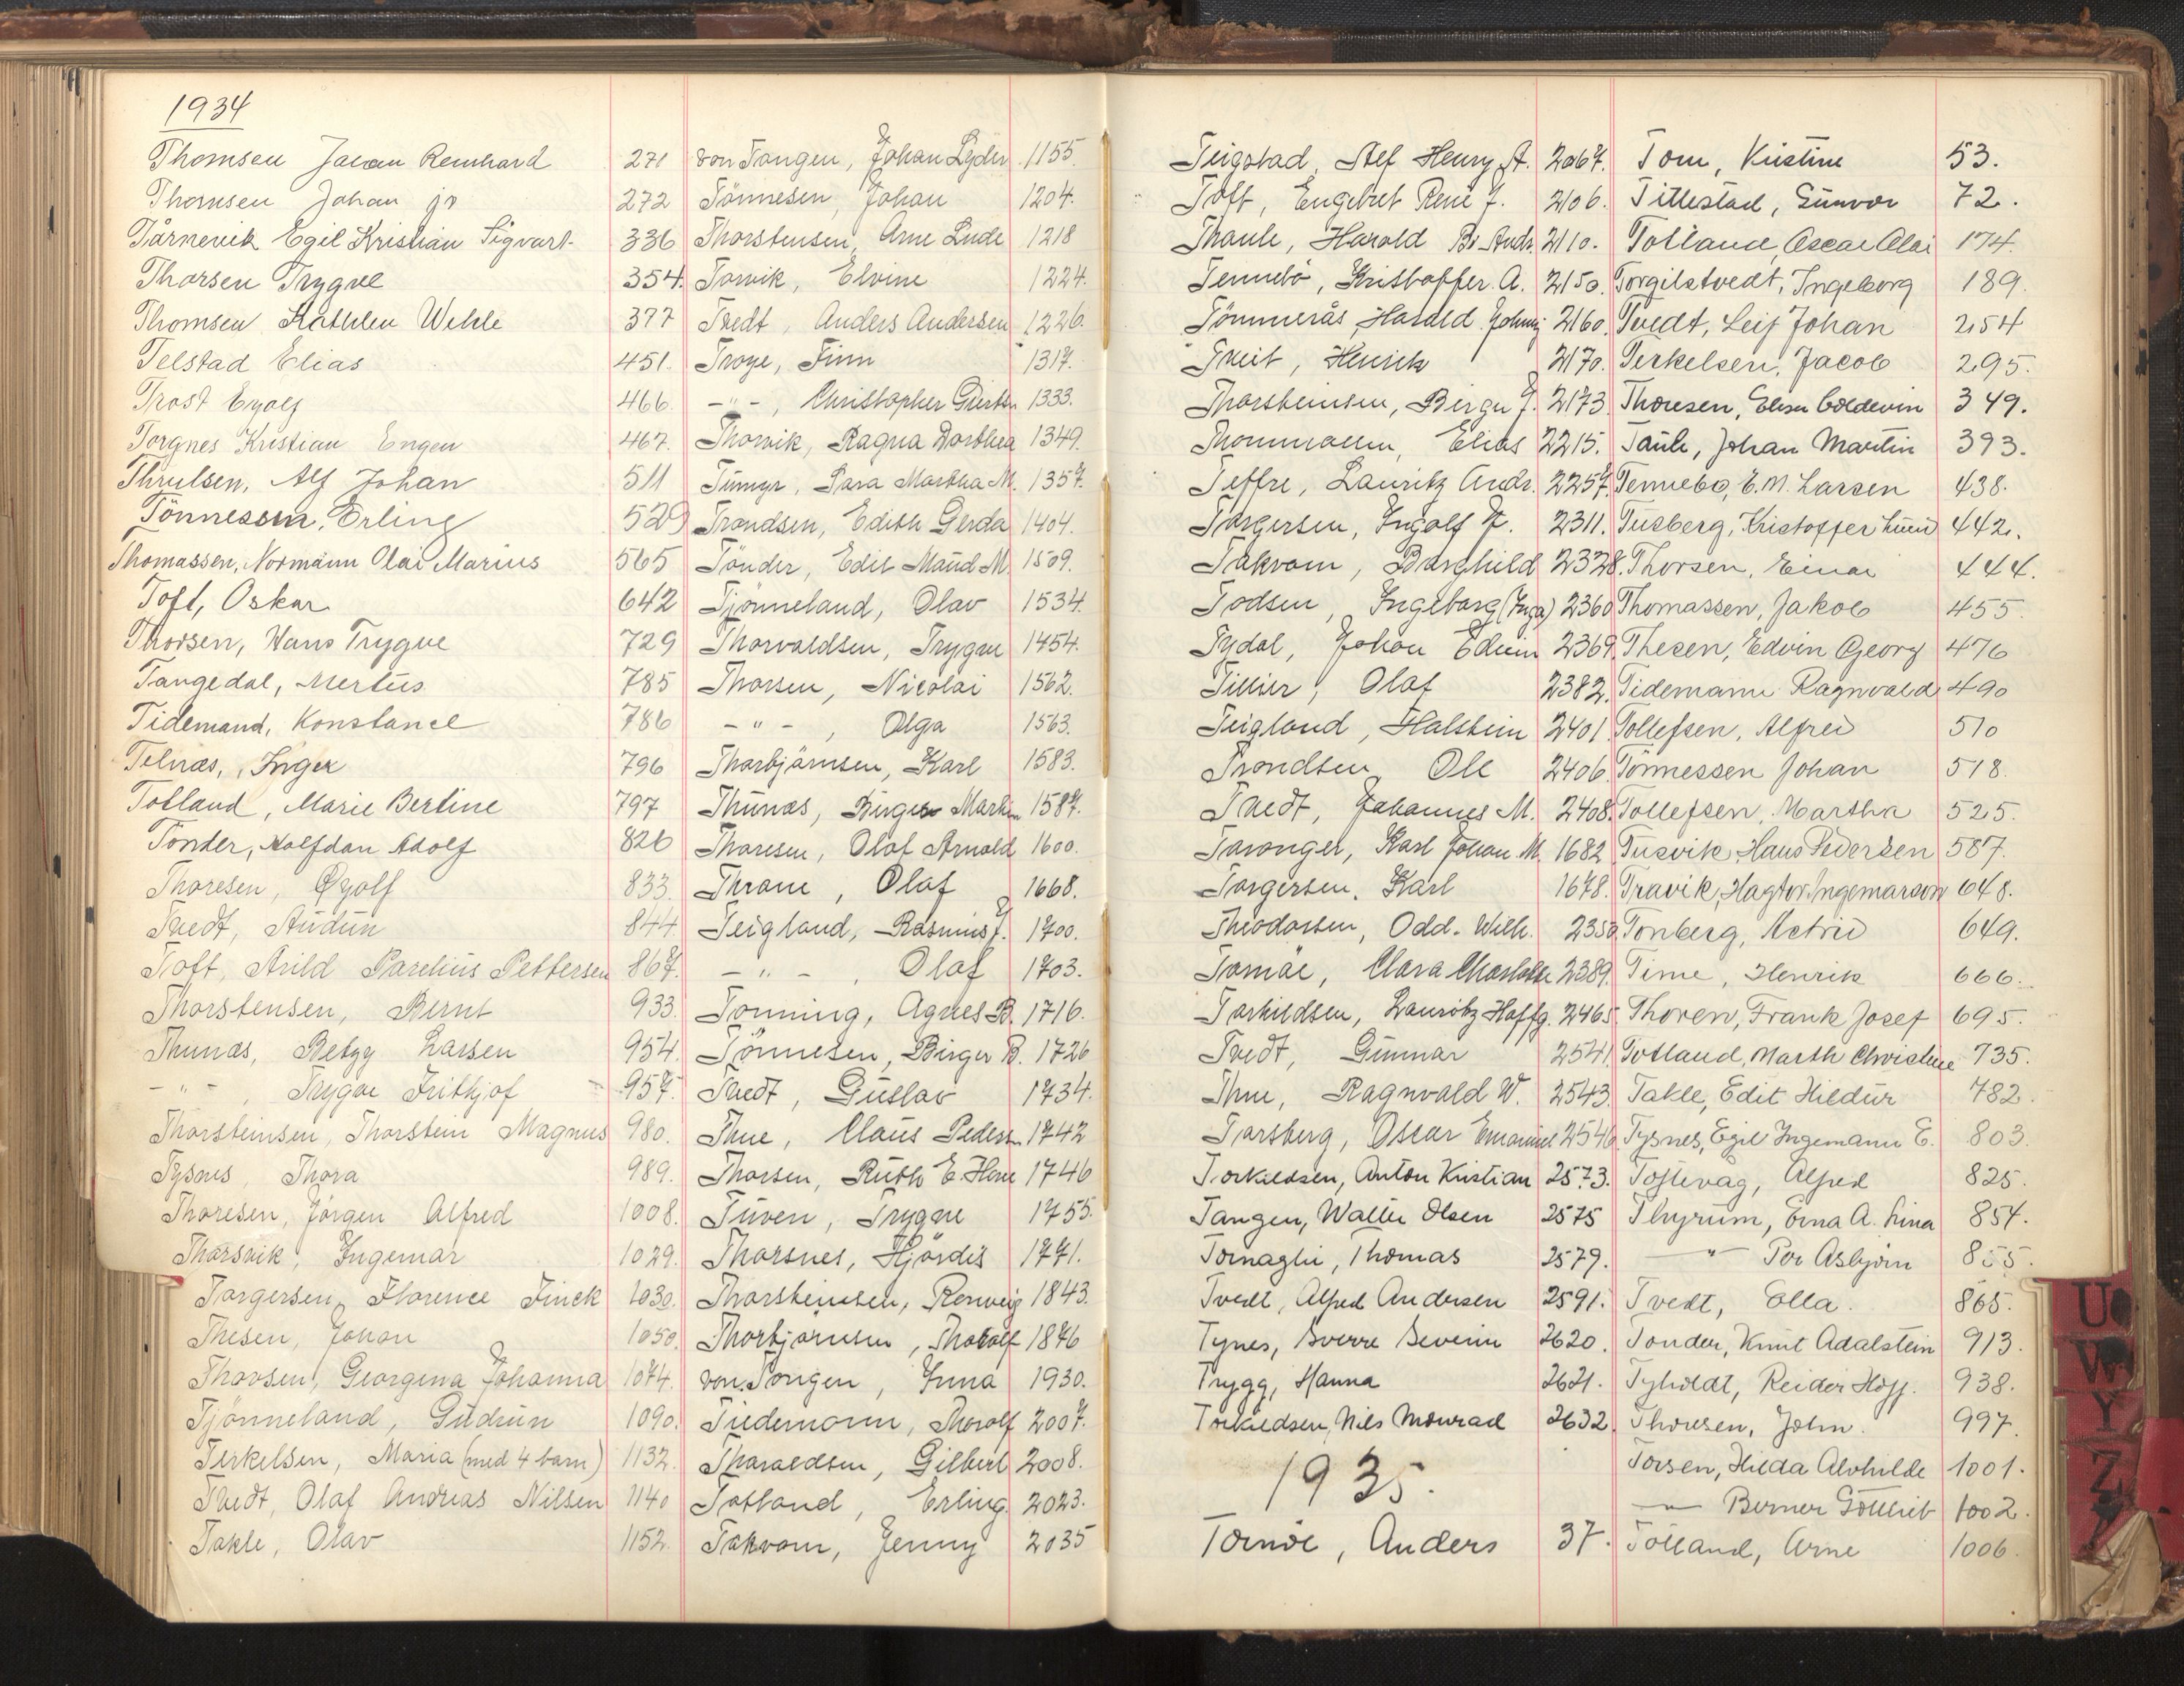 1934
Thomsen Reinhard 271
Thomsen Johan jr 272
Tårnevik Egil Kristian Sigvart 336
Thorsen Trygve 354.
Thomsen Kathlen Wehle 377
Telstad Elias 451.
Trost Eyolf 466.
Torgnes Kristian Engen 467.
Thrulsen, Alf Johan 511
Tönnessen, Erling 529
Thomassen, Normann Olai Marius 565
Toft, Oskar 642
Thorsen, Hans Trygve 729
Tangedal, Mertus 785
Tidemand, Konstance 786
Telnæs, Inger 796
Totland, Marie Bertine 797
Tonder, Halfdan Adolf 826
Thoresen, Eyolf 833.
Tvedt, Audun 844
Toft, Arild Parelius Pettersen 867.
Thorstensen, Bernt 933.
Thunæs, Betzy Larsen 954.
-"-, Trygve Fritkjof 957.
Thorsteinsen, Thorstein Magnus 980.
Tysnes, Thora 989.
Thoresen, Jörgen Alfred 1008.
Thorsvik, Ingemar 1029.
Torgersen, Florence Finck 1030.
Thesen, Johan 1050.
Thorsen, Georgina Johanna 1074.
Tjönneland, Gudrun 1090.
Terkelsen, Maria (med 4 barn) 1132.
Tvedt, Olaf Andreas Nilsen 1140
Takle, Olav 1152.
von Tangen, Johan Lyder 1155.
Tönnesen, Johan 1204.
Thorstensen, Arne Lude 1218
Torvik, Elvine 1224.
Tvedt, Anders Andersen 1226.
Troye, Finn 1317.
-"-, Christopher Giertsen 1333.
Thorvik, Ragna Dorthea 1349.
Tumyr, Sara Martha M. 1357.
Trondsen, Edith Gerda 1404.
Tönder, Edit Maud M. 1509.
Tjönneland, Olav 1534.
Thorvaldsen, Trygve 1454.
Thorsen, Nicolai 1562.
-"-, Olga 1563.
Thorbjörnsen, Karl 1583.
Thunæs, Birger Martin 1587.
Thoresen, Olaf Arnold 1600.
Thrane, Olaf 1668.
Teigland, Rasmus J. 1700.
-"-, Olaf 1703.
Tonning, Agnes B. 1716.
Tönnesen, Birger B. 1726
Tvedt, Gustav 1734.
Thue, Claus Peders. 1742
Thorsen, Ruth E. 1746
Tuven, Trygve 1755.
Thorsnes, Hjördis 1771.
Thorsteinsen, Renveig 1843.
Thorbjörnsen, Thorolf 1876
von Tangen, Inna 1930.
Tiedemann, Thorolf 2007.
Tharaldsen, Gilbert 2008.
Totland, Erling. 2023.
Takvam, Jenny 2035
Teigstad, Alf Henry A. 2067.
Toft, Engebret René J. 2106.
Thaule, Harold Andr. 2110.
Tennebö, Kristoffer A. 2150.
Tömmerås, Harald Johnny 2160.
Tveit, Henrik 2170.
Thorsteinsen, Birger J. 2173.
Thommasen, Elias 2215.
Teffre, Lauritz Andr. 2257.
Torgersen, Ingolf 2311.
Takvam, Borghild 2328.
Todsen, Ingeborg (Inga) 2360
Tydal, Johan Edvin 2369.
Tillier, Olaf 2382.
Teigland, Halstein 2401.
Trondsen, Ole 2406.
Tvedt, Johannes M. 2408.
Taranger, Karl Johan M. 1682
Torgersen, Karl 1678.
Theodorsen, Odd. Wilh. 2350.
Tomåe, Clara Charlotte 2389.
Torkildsen, Lauritz Hoffg. 2465
Tvedt, Gunnar 2541.
Thue, Ragnvald W. 2543.
Torsberg, Oscar Emanuel 2546.
Torkildsen, Anton Kristian 2573.
Tangen, Walter Olsen 2575
Tornaghi, Thomas 2579.
Tvedt, Alfred Andersen 2591.
Tynes, Sverre Severin 2620.
Trygg, Hanna 2621.
Torkildsen, Nils Monrad 2632.
1935.
Tornöe, Anders 37.
Tom, Kristine 53.
Tittestad, Gunvor 72.
Totland, Oscar Olai 174.
Torgilstvedt, Ingeborg 189.
Tvedt, Leif Johan 254
Terkelsen, Jacob 295.
Thoresen, Elisa Coldevin 349.
Taule, Johan Martin 393.
Tennebö, E. M. Larsen 438.
Tusberg, Kristoffer 442.
Thorsen, Einar 444.
Thomassen, Jakob 455.
Thesen, Edvin Georg 476
Tidemann Ragnvald 490
Tollefsen, Alfred 510
Tönnessen Johan 518.
Tollefsen, Martha 525.
Tusvik Hans Pedersen 587.
Travik, Hagtor Ingemarson 648.
Tonberg, Astrid 649.
Time, Henrik 666.
Thoren, Frank Josef 695.
Totland, Marth Christine 735.
Takle, Edit Hildur 782.
Tysnes, Egil Ingemann E. 803.
Toftevåg, Alfred 825.
Thyrum, Erna A. Lina 854.
-"- Per Asbjörn 855.
Tvedt, Ella. 865.
Tonder, Knut Adalstein 913.
Tyholdt, Reidar Hoff. 938.
Thoresen, John. 997.
Torsen, Hilda Alvhilde 1001.
-"- Berner Gottlieb 1002.
Totland, Arne 1006.
U
W
Y
Z